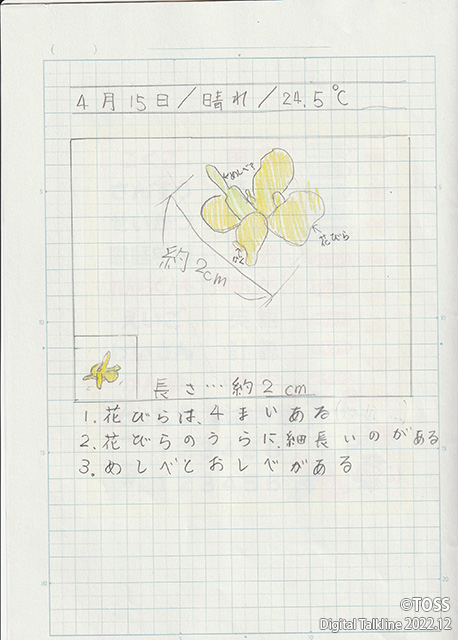 4月15日／晴れ／24.5℃
めしべ
花びら
がく
約2cm
長さ…約2cm
1.花びらは、4まいある
2.花びらのうらに、細長いのがある
3.めしべとおしべがある
©TOSS
Digital Talkline 2022.12